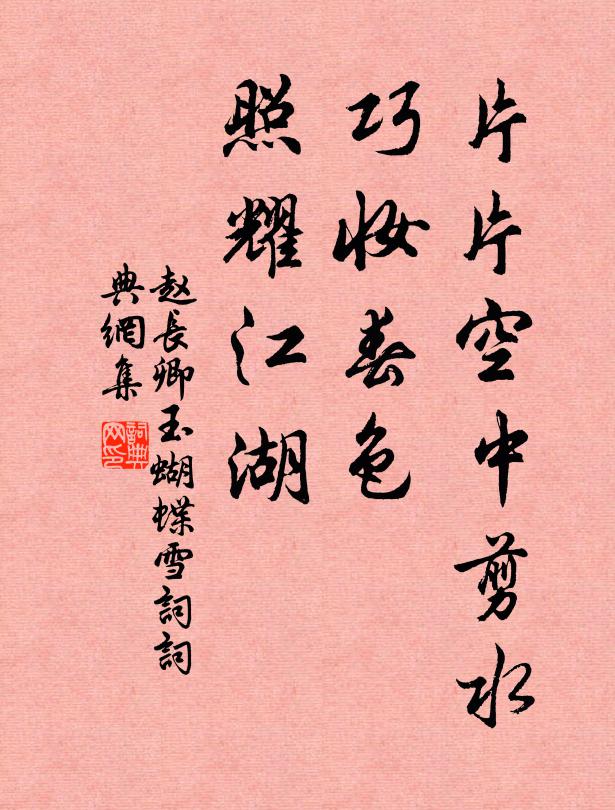 片片空中剪水
巧妝春色
照耀江湖
赵長卿玉蝴蝶雪詞詞
典網集
詞典
网印